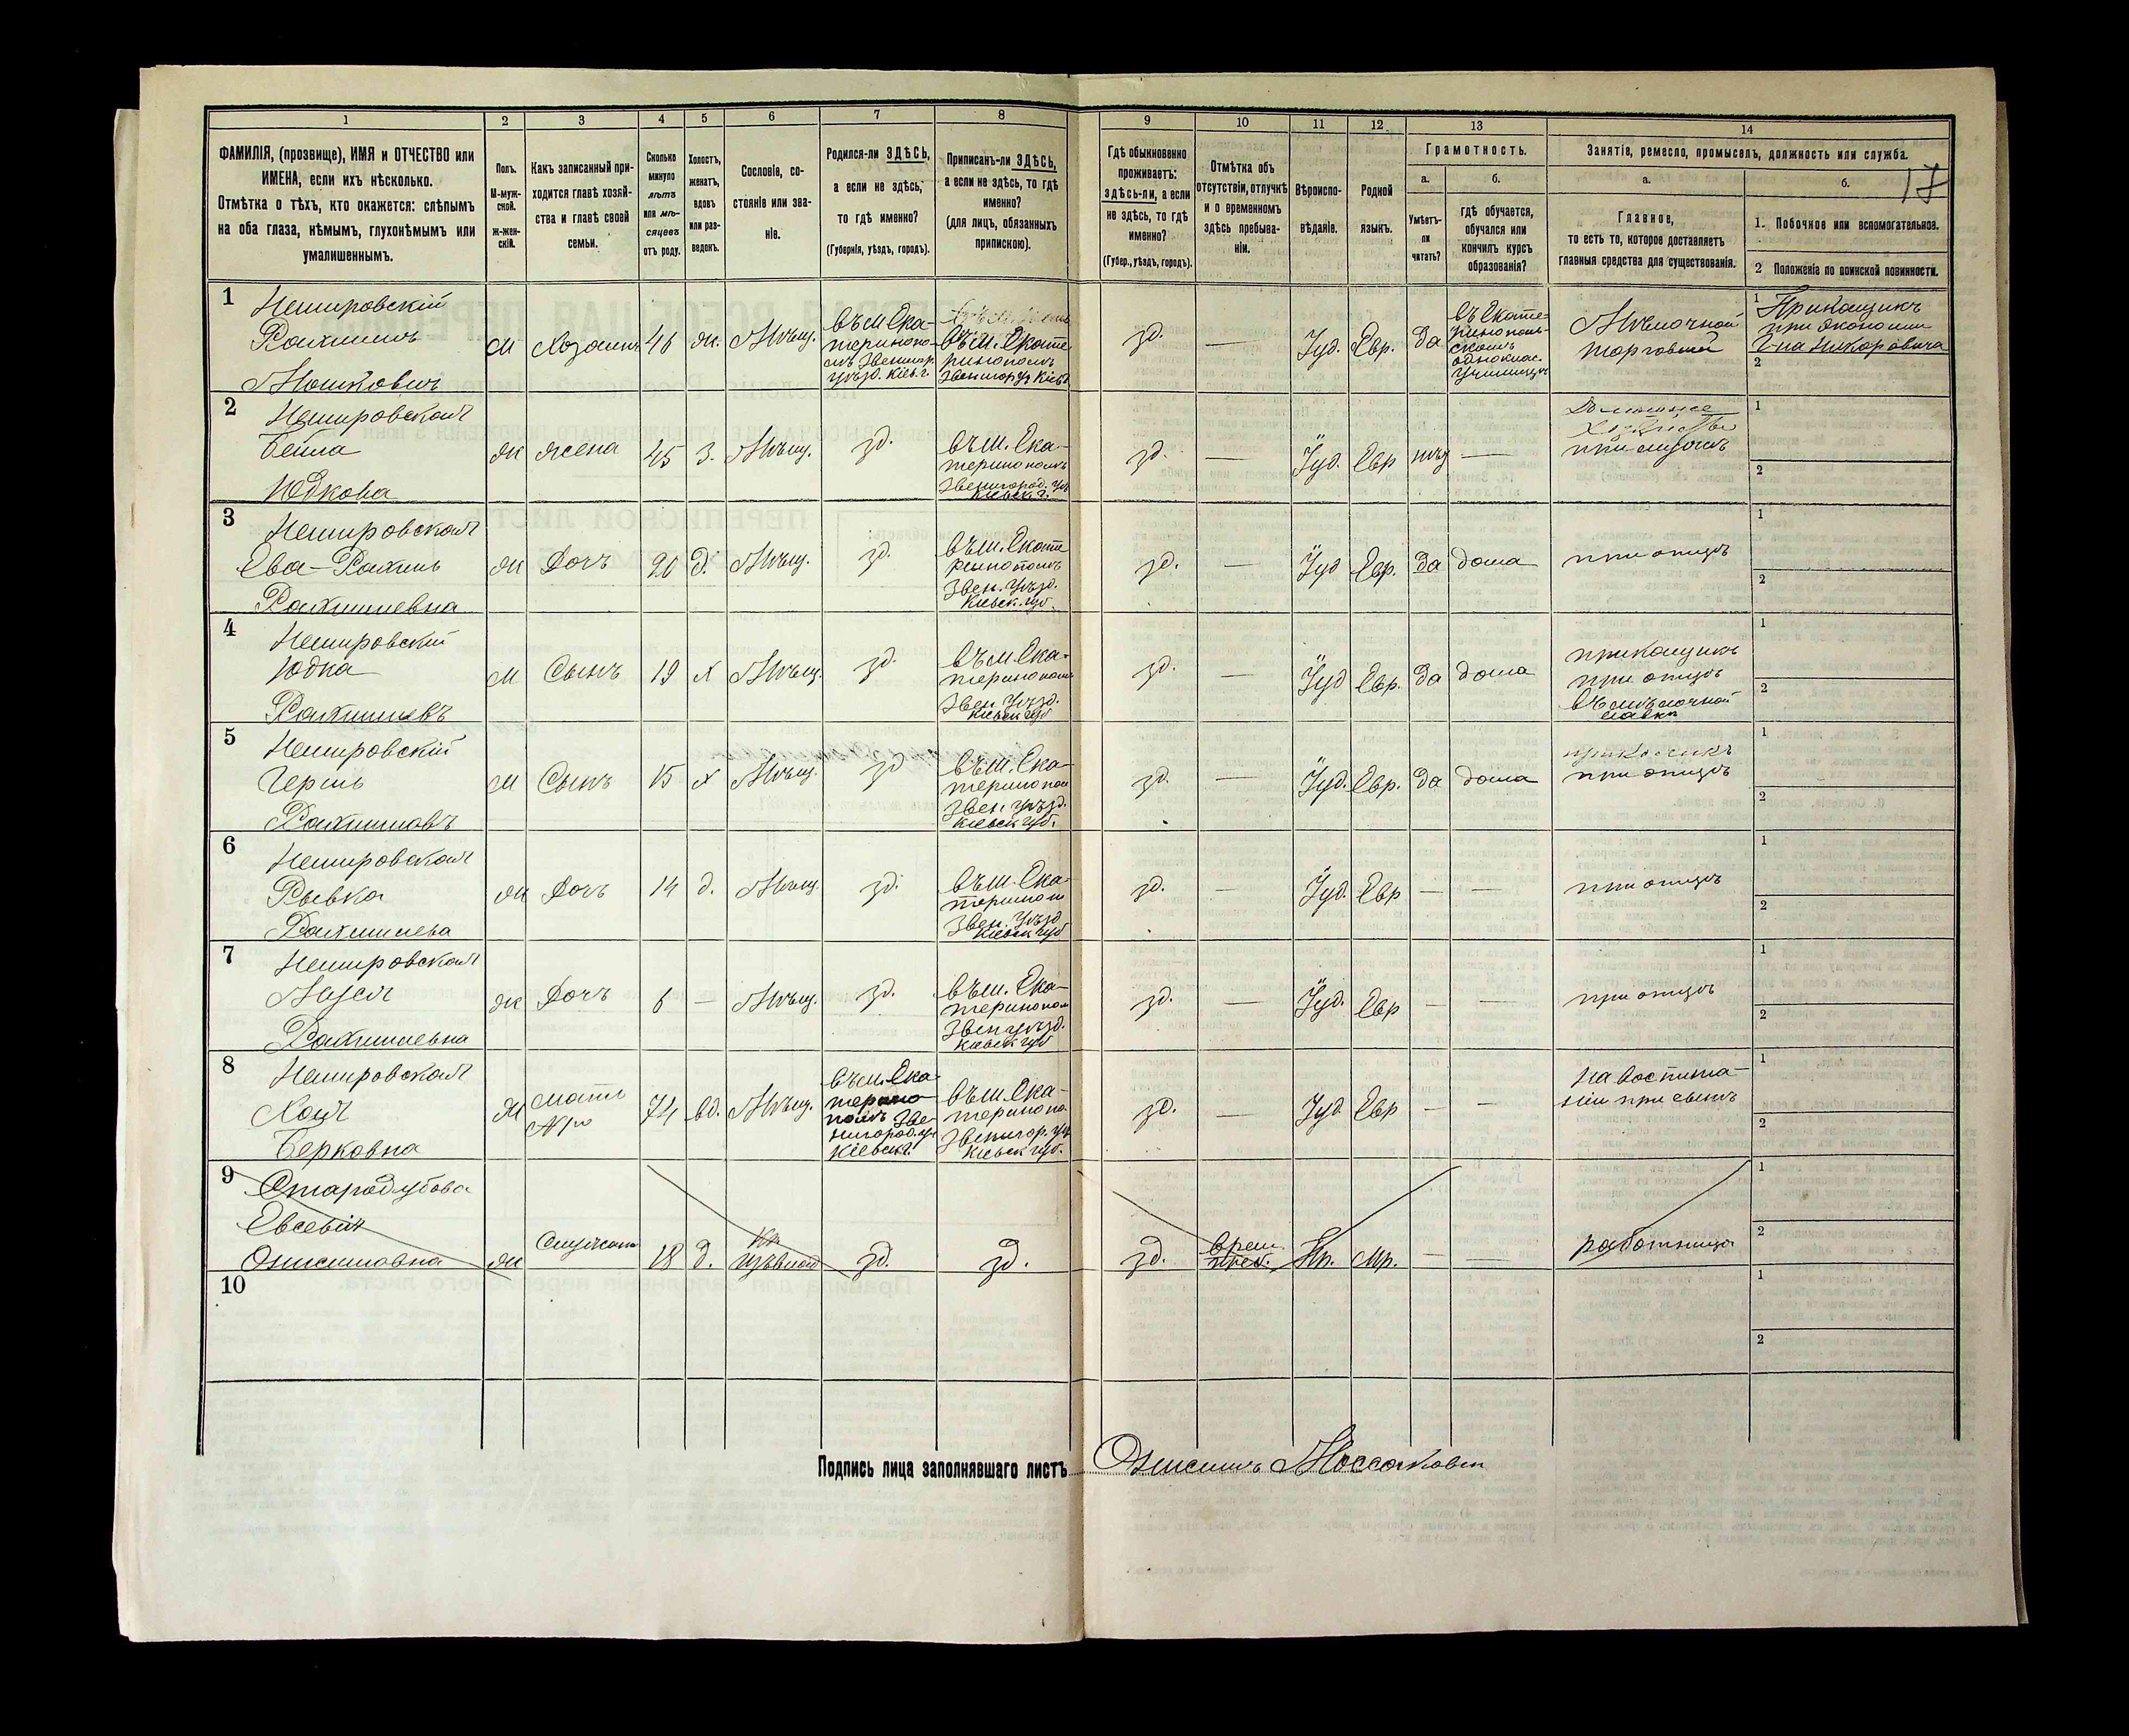 17
1 2 3 4 5 6 7 8 9 10 11 12 13 14
ФАМИЛІЯ, (прозвище), ИМЯ и ОТЧЕСТВО или
ИМЕНА, если ихъ нѣсколько.
Отмѣтка о тѣхъ, кто окажется: слѣпымъ
на оба глаза, нѣмымъ, глухонѣмымъ или
умалишеннымъ.
Полъ.
М-муж-
ской.
Ж-жен-
скій.
Какъ записанный при-
ходится главѣ хозяй-
ства и главѣ своей
семьи.
Сколько
минуло
лѣтъ
или мѣ-
сяцевъ
отъ роду.
Холостъ,
женатъ,
вдовъ
или раз-
веденъ.
Сословіе, со-
стояніе или зва-
ніе.
Родился-ли ЗДѢСЬ,
а если не здѣсь,
то гдѣ именно?
(Губернія, уѣздъ, городъ).
Приписанъ-ли ЗДѢСЬ,
а если не здѣсь, то гдѣ
именно?
(для лицъ, обязанныхъ
припискою).
Гдѣ обыкновенно
проживаетъ:
здѣсь-ли, а если
не здѣсь, то гдѣ
именно?
(Губер., уѣздъ, городъ).
Отмѣтка объ
отсутствіи, отлучкѣ
и о временномъ
здѣсь пребыва-
ніи.
Вѣроиспо-
вѣданіе.
Родной
языкъ.
Грамотность.
а.
Умѣетъ-
ли
читать?
б.
гдѣ обучается,
обучался или
кончилъ курсъ
образованія?
Занятіе, ремесло, промыселъ, должность или служба.
а.
Главное,
то есть то, которое доставляетъ
главныя средства для существованія.
б.
1. Побочное или вспомогательное.
2 Положеніе по воинской повинности.
1
Немировскій
Рахмиль
Мошковичъ
М
Хозяинъ
46
ж.
Мѣщ.
въ м. Ека-
теринопо-
лѣ Звенигор.
уѣзд. Кіев. г.
въ м. Екате
ринополѣ
зд.
—
Іуд.
Евр.
да
въ Екате-
ринополь-
скомъ
однокласс.
училищѣ
Мѣлочной
торговлей
1 Прикащикъ
при экономіи
2
2
Немировская
Бейла
Юдкова
ж
жена
45
з.
Мѣщ.
зд.
въ м. Ека-
теринополѣ
Звенигород. уѣ
Кіевск. г.
зд.
—
Іуд.
Евр
нѣт
—
Домашнее
при мужѣ
1
2
3
Немировская
Ева-Рахиль
Рахмилевна
ж
Дочь
20
д.
Мѣщ.
зд.
въ м. Екате
ринополѣ
Звен. уѣзд.
Кіевск. губ.
зд.
—
Іуд
Евр.
да
дома
при отцѣ
1
2
4
Немировскій
Юдка
Рахмилевъ
М
Сынъ
19
х
Мѣщ.
зд.
въ м. Ека-
теринопол
Звен. уѣзд.
Кіевск губ
зд.
—
Іуд
Евр.
да
дома
прикащикъ
при отцѣ
въ мѣлочной
лавкѣ
1
2
5
Немировскій
Гершь
Рахмилевъ
М
Сынъ
15
х
Мѣщ.
зд
въ м. Ека-
теринопол
Звен. уѣзд.
Кіевск губ.
зд.
—
Іуд.
Евр.
да
дома
при отцѣ
1
2
6
Немировская
Рывка
Рахмилева
ж
Дочь
14
д.
Мѣщ.
зд.
въ м. Ека-
теринопол
Звен. уѣзд
Кіевск губ
зд.
—
Іуд.
Евр
—
—
при отцѣ
1
2
7
Немировская
Рахмилевна
ж
Дочь
6
—
Мѣщ.
зд.
въ м. Ека-
теринопол
Звен уѣзд.
Кіевск губ
зд.
—
Іуд.
Евр
—
—
при отцѣ
1
2
8
Немировская
Хая
Берковна
ж
мать
74
вд.
Мѣщ.
въ м. Ека-
терино-
полѣ Зве
нигород. у.
Кіевск г.
въ м. Ека-
теринопо
Звенигор. уѣ
Кіевск губ.
зд.
—
Іуд
Евр
—
—
на воспита-
ніи при сынѣ
1
2
9
Стародубова
Онисимовна
ж
18
д.
зд.
зд.
зд.
врем.
преб.
Пр.
Мр.
—
—
работница
1
2
10
1
2
Подпись лица заполнявшаго листъ
Онисимъ